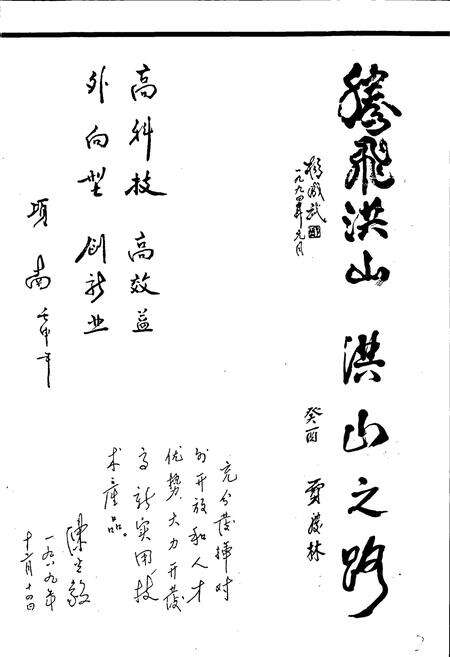 腾飞洪山
杨成武
一九九四年元月
洪山之路
癸酉 贾庆林
高科技 高效益
外向型 创新业
项南 壬申年
充分发挥对
外开放和人才
优势大力开发
高新实用技
术产品。
陈立毅
一九八九年
十一月十四日